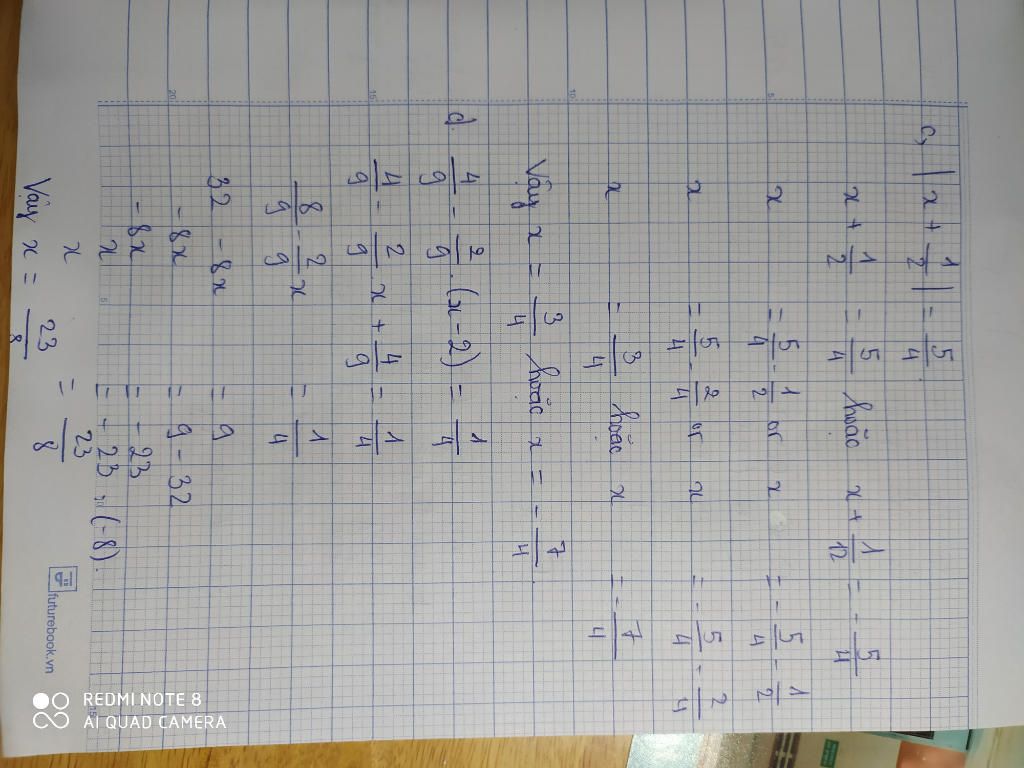 c, | x + 1/2 | = 5/4
x + 1/2 = 5/4 hoặc x + 1/12 = - 5/4
x = 5/4 - 1/2 or x = - 5/4 - 1/2
x = 5/4 - 2/4 or x = - 5/4 - 2/4
x = 3/4 hoặc x = - 7/4
Vậy x = 3/4 hoặc x = - 7/4.
d. 4/9 - 2/9 . (x - 2) = 1/4
4/9 - 2/9 x + 4/9 = 1/4
8/9 - 2/9 x = 1/4
32 - 8x = 9
- 8x = 9 - 32
- 8x = - 23
x = - 23 : (-8).
x = 23/8
Vậy x = 23/8
futurebook.vn
5
10
15
20
5
15
REDMI NOTE 8
AI QUAD CAMERA